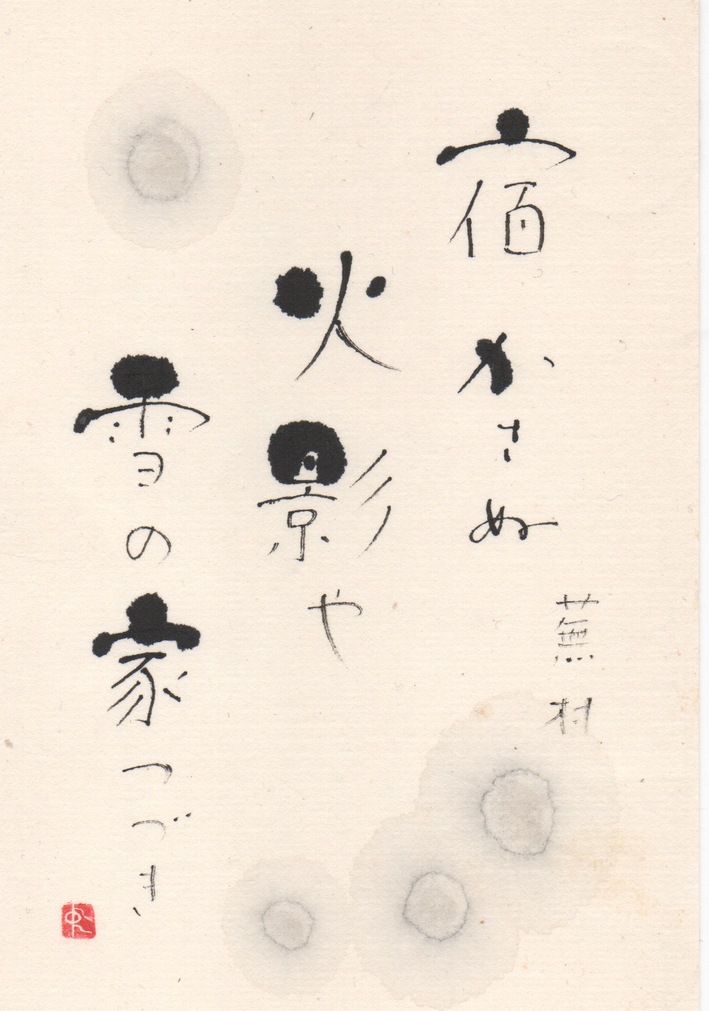 宿かさぬ
火影や
雪の家つづき
蕪村